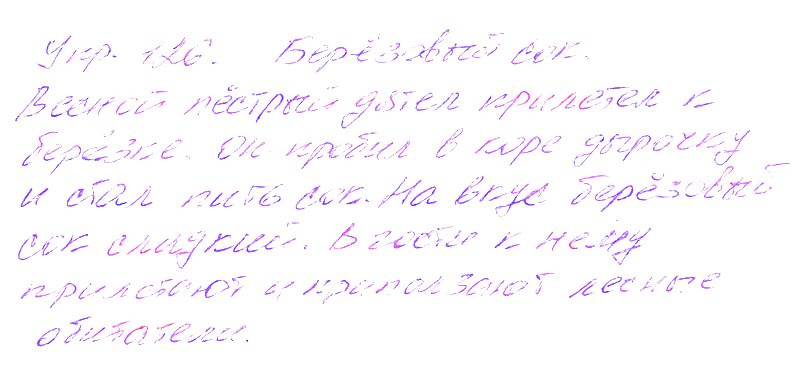 Упр. 126. Берёзовый сок.
Весной пёстрый дятел прилетел к
берёзке. Он пробил в коре дырочку
и стал пить сок. На вкус берёзовый
сок сладкий. В гости к нему
прилетают и приползают лесные
обитатели.